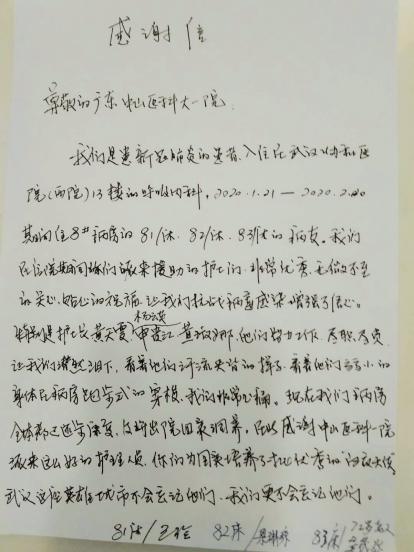 感谢信
尊敬的广东中山医科大一院
我们是患新冠肺炎的患者,入住在武汉协和医
院(西院)13楼的呼吸内科,2020.1.21—2020.2.20
期间住8#病房的81床、82床、83床的病友。我们
在住院期间你们派来援助的护士们,非常优秀,无微不至
的关心,贴心的祝福,让我们抗战病毒感染增强了信心。
特别是护士长黄天雯、申 他们努力工作,尽职尽责,
让我们潸然泪下,看着他们汗流夹背的样子,看着他们弱小的
身体在病房跑步式的穿梭,我们非常心痛。现在我们病房
全体都已逐步康复,及将出院回家调养,在此感谢中山医科一院
派来这么好的护理人员,你们为国家培养了批优秀的白衣天使
武汉这座英雄城市不会忘记你们,我们更不会忘记你们。
81床/王 82床/ 83床/